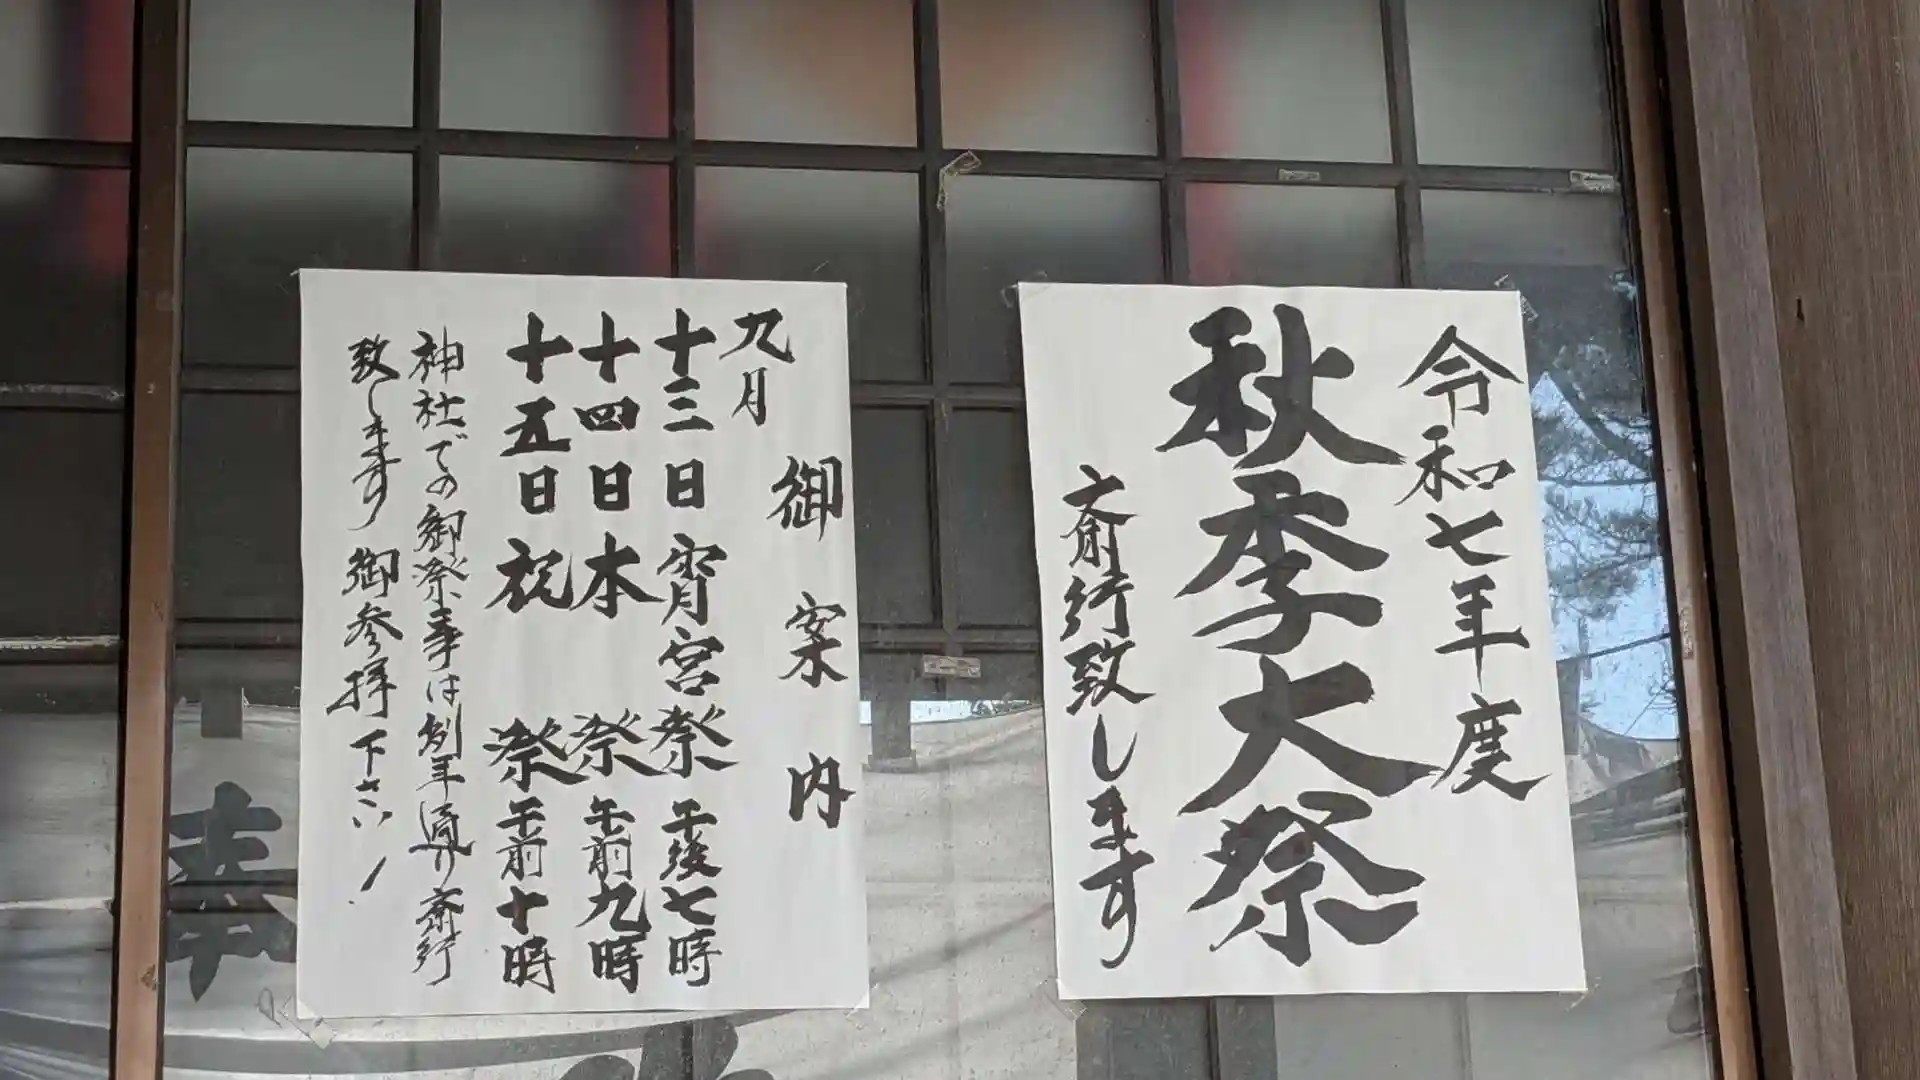 令和七年度
秋季大祭
斎行致します
御案内
九月
十三日宵宮祭午後七時
十四日本祭午前九時
十五日祝祭午前十時
神社での御祭事は例年通り斎行
致します御参拝下さい!
奉